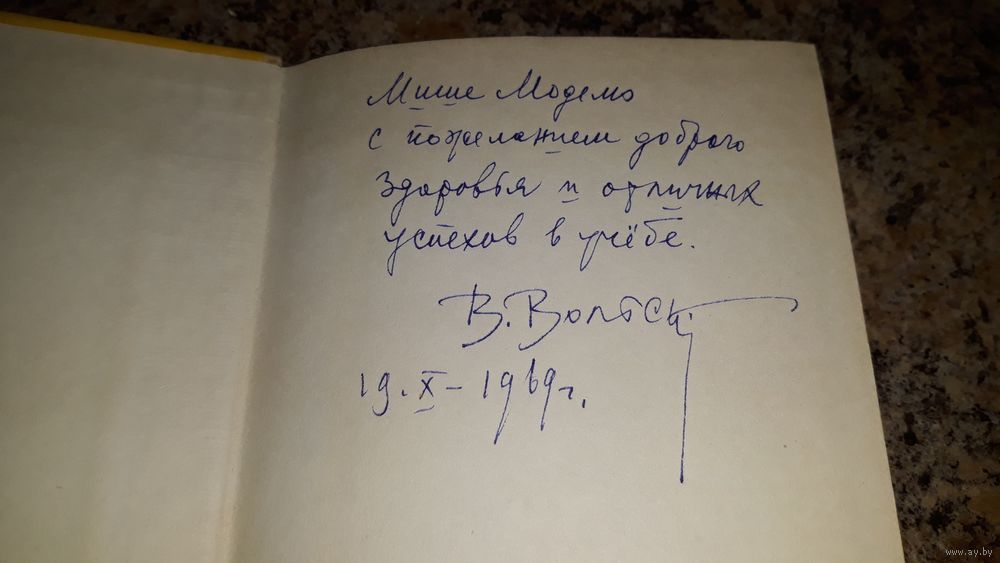 Мише Модемо
с пожеланием доброго
здоровья и отличных
успехов в учёбе.
В. Вольск
19. X – 1969 г.
www.ay.by